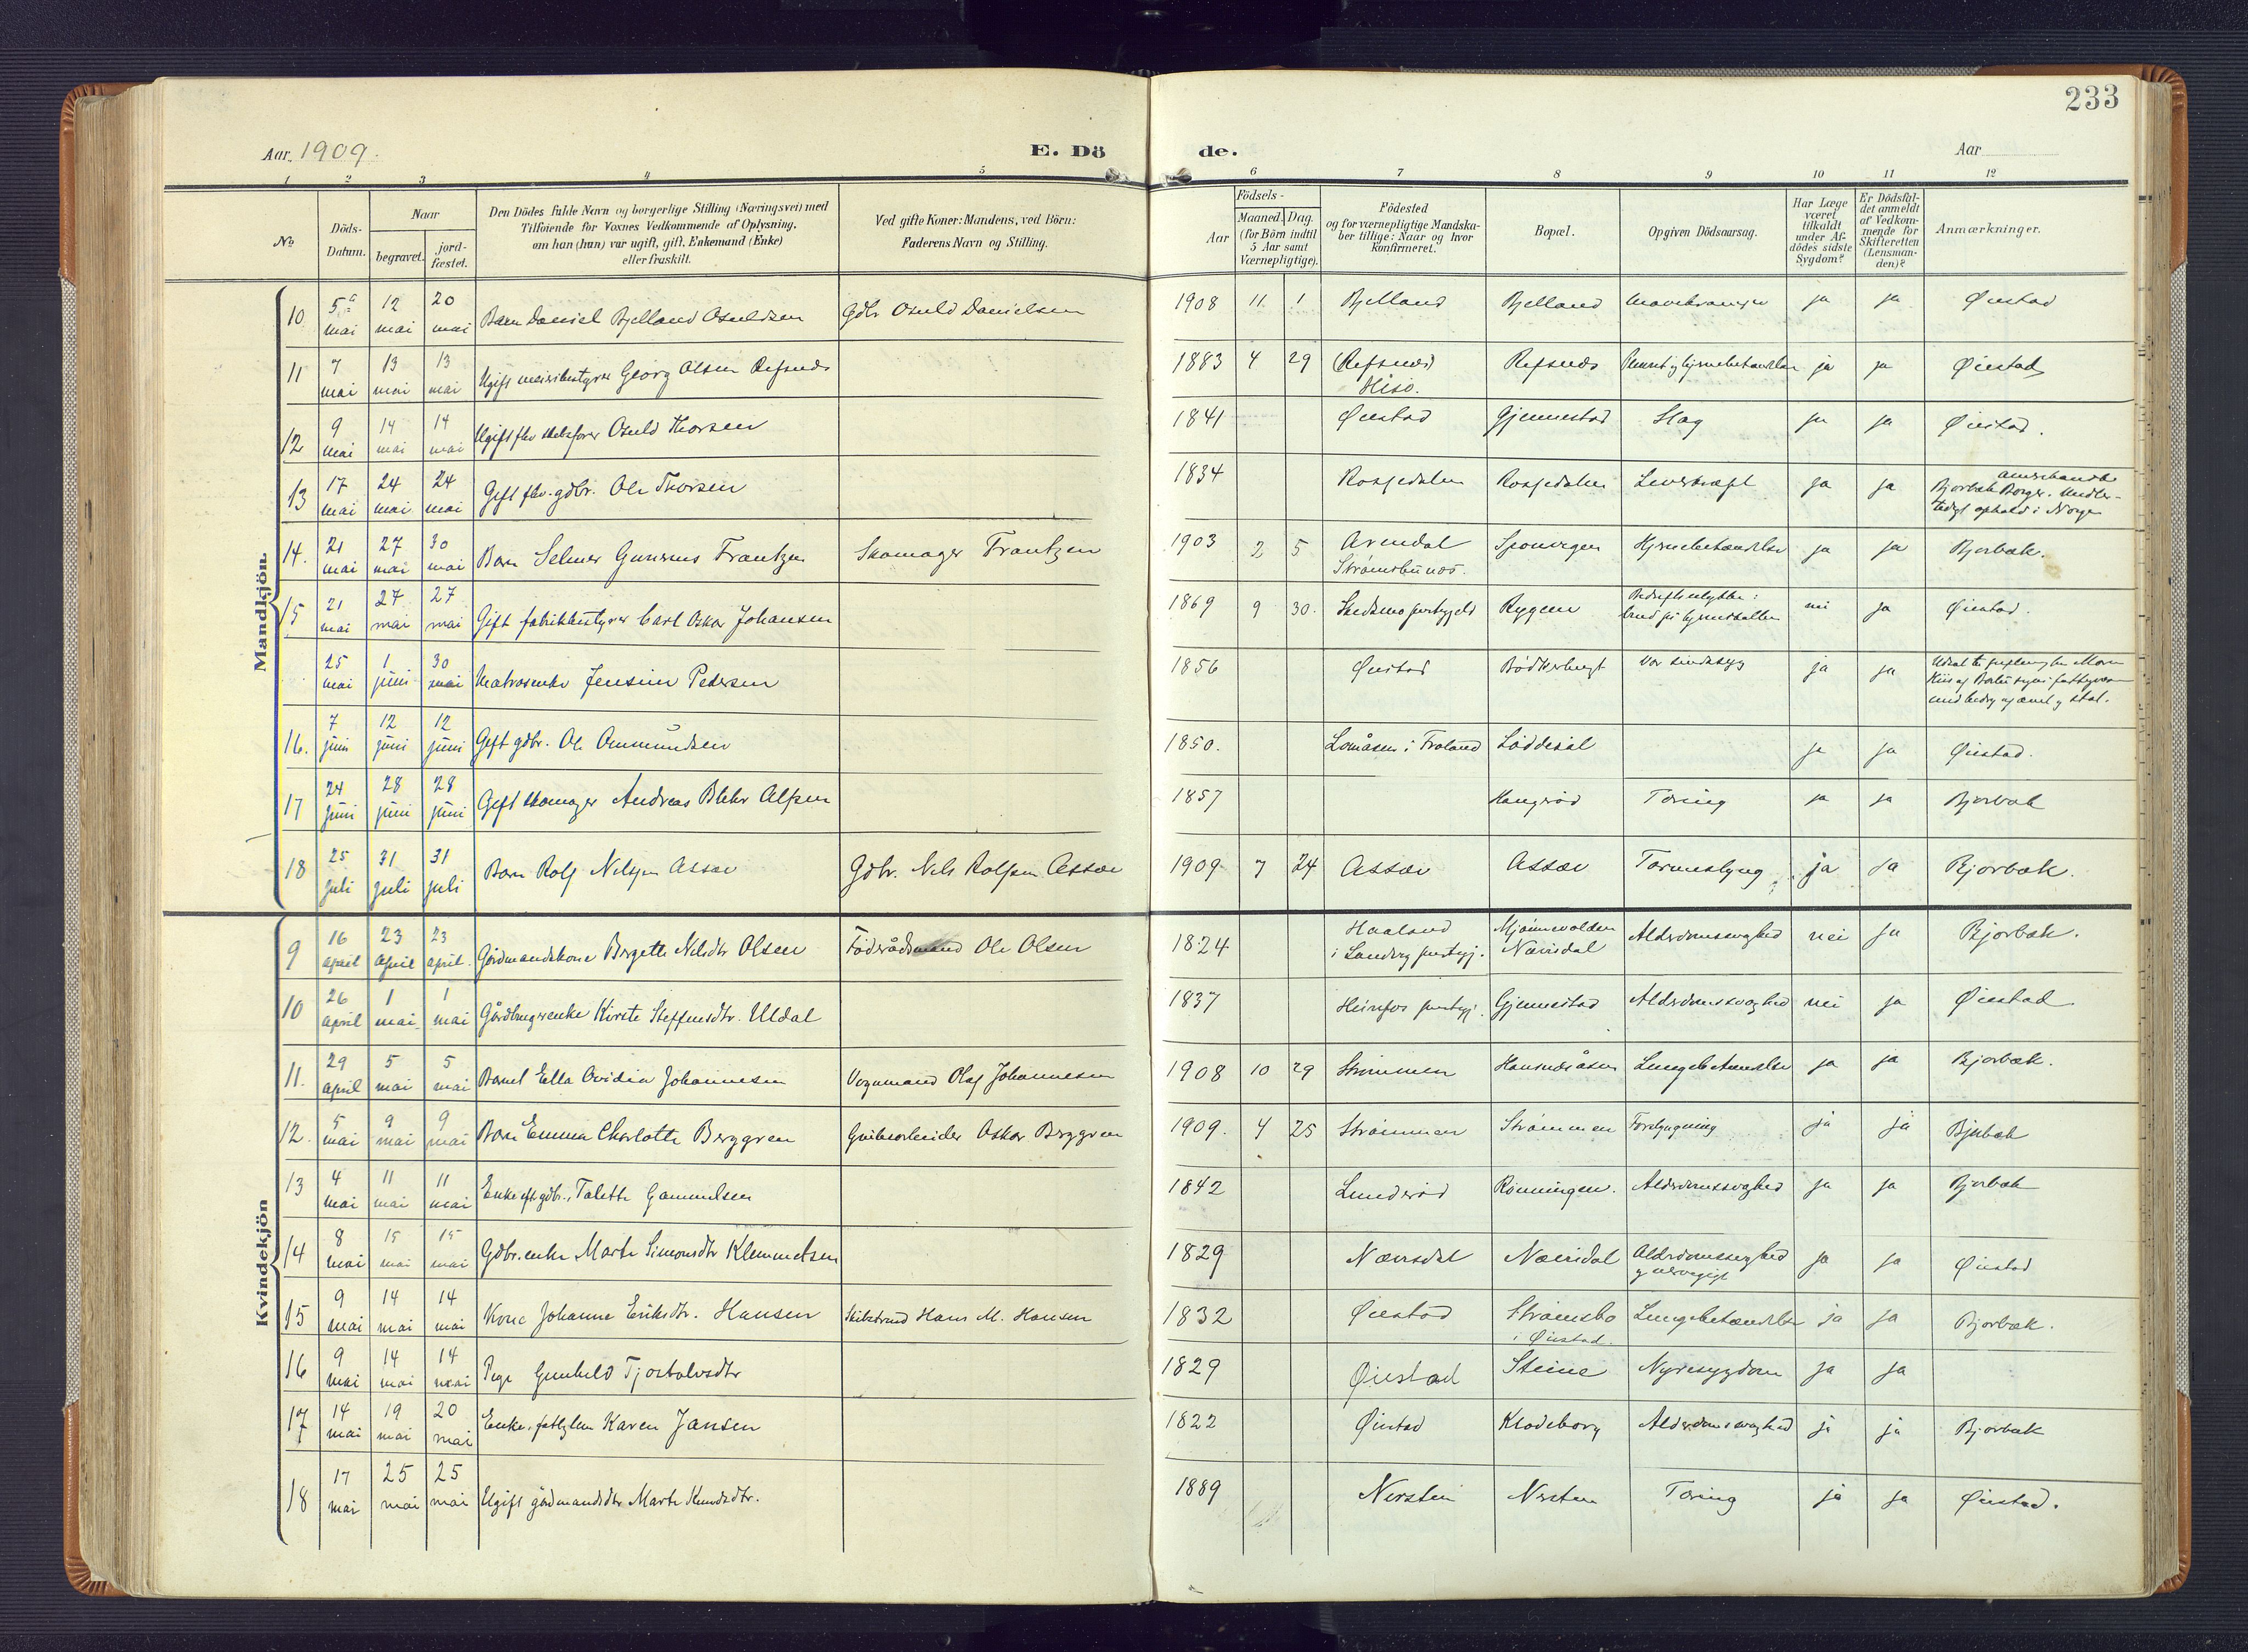 233
Aar 1909.
E. Dö
de.
Aar
1 2 3 4 5 6 7 8 9 10 11 12
No
Döds-Datum.
Naar
begravet.
jord-fæstet.
Den Dödes fulde Navn og borgerlige Stilling (Næringsvei) med
Tilföiende for Voxnes Vedkommende af Oplysning,
om han (hun) var ugift, gift, Enkemand (Enke)
eller fraskilt.
Ved gifte Koner: Mandens, ved Börn:
Faderens Navn og Stilling.
Födsels-
Aar
Maaned. Dag.
(for Börn indtil
5 Aar samt
Værnepligtige).
Födested
og for værnepligtige Mandska-
ber tillige: Naar og hvor
konfirmeret.
Bopæl.
Opgiven Dödsaarsag.
Har Læge
været
tilkaldt
under Af-
dödes sidste
Sygdom?
Er Dödsfal-
det anmeldt
af Vedkom-
mende for
Skifteretten
(Lensman-
den)?
Anmærkninger.
Mandkjön
10 5 mai 12 mai 20 mai Barn Daniel Bjelland Osuldsen Gdbr Osuld Danielsen 1908 11 1 Bjelland Bjelland ja ja Øiestad
11 7 mai 13 mai 13 mai Ugift meieribestyrer Georg Olsen Refsnes 1883 4 29 (Refsnes) Hisö. Refsnes ja ja Øiestad
12 9 mai 14 mai 14 mai Ugift fhv skibsfører Osuld Thorsen 1841 Øiestad Gjennestad Slag ja ja Øiestad.
13 17 mai 24 mai 24 mai Gift fhv. gdbr. Ole Thorsen 1834 Rossedalen Rossedalen Leverkræft ja ja amerikansk
Bjorbæk Borger. Midler-
tidigt ophold i Norge
14. 21 mai 27 mai 30 mai Barn Selmer Gunerius Frantzen Skomager Frantzen 1903 2 5 Arendal
Strömsbunæs. Hjernebetændelse ja ja Bjorbæk.
15 21 mai 27 mai 27 mai Gift fabrikbestyrer Carl Oskar Johansen 1869 9 30. Skedsmo prestgjeld Rygene Bedriftsulykke:
brud på hjerneskallen nei ja Øiestad.
25 mai 1 juni 30 mai Matrosenke Jensine Petersen 1856 Øiestad Var sindssyg ja ja
16. 7 juni 12 juni 12 juni Gift gdbr. Ole Ommundsen 1850. Lomåsen i Froland Løddesöl ja ja Øiestad.
17 24 juni 28 juni 28 juni Gift skomager Andreas Olsen 1857 Haugeröd Tæring ja ja Bjorbæk
18 25 juli 31 juli 31 juli Barn Rolf Nilsen Assæv Gdbr. Nils Rolfsen Assæv 1909 7 24 Assæv Assæv Tarmeslyng ja ja Bjorbæk.
Kvindekjön
9 16 april 23 april 23 april. Gårdmandskone Bergette Nilsdtr Olsen Föderådsmand Ole Olsen 1824 Haaland
i Landvig prestgj. Mjönnevolden
Næsdal Alderdomssvaghed nei ja Bjorbæk.
10 26 april 1 mai 1 mai Gårdbrugerenke Kirste Steffensdtr. Uldal 1837 Heirefos prestgj. Gjennestad Alderdomssvaghed nei ja Øiestad
11. 29 april 5 mai 5 mai Barnet Ella Ovidia Johannesen Vognmand Olaf Johannesen 1908 10 29 Strömmen Hansnesåsen Lungebetændelse ja ja Bjorbæk.
12. 5 mai 9 mai 9 mai Barn Emma Charlotte Berggren Grubearbeider Oskar Berggren 1909. 4 25 Strömmen Strömmen ja ja Bjorbæk
13 4 mai 11 mai 11 mai Enke eft gdbr. Talette Gammelsen 1842 Lunderöd Rönningen. Alderdomssvaghed ja ja Bjorbæk
14 8 mai 15 mai 15 mai Gdbr. enke Marte Simonsdtr Klemmetsen 1829 Næsdal Næsdal Alderdomssvaghed ja ja Øiestad
15 9 mai 14 mai 14 mai Kone Johanne Eriksdtr. Hansen Hans M. Hansen 1832 Øiestad Strömsbo
i Øiestad. Lungebetændelse ja ja Bjorbæk.
16 9 mai 14 mai 14 mai Pige Gunhild Tjostolvsdtr 1829 Øiestad Steine Nyresygdom ja ja
17 14 mai 19 mai 20 mai Enke, fattiglem Karen Jansen 1822 Øiestad Klodeborg Alderdomssvaghed ja ja Bjorbæk
18 17 mai 25 mai 25 mai Ugift gårdmandsdtr Marte Knudsdtr. 1889 Nersten Nersten Tæring ja ja Øiestad.